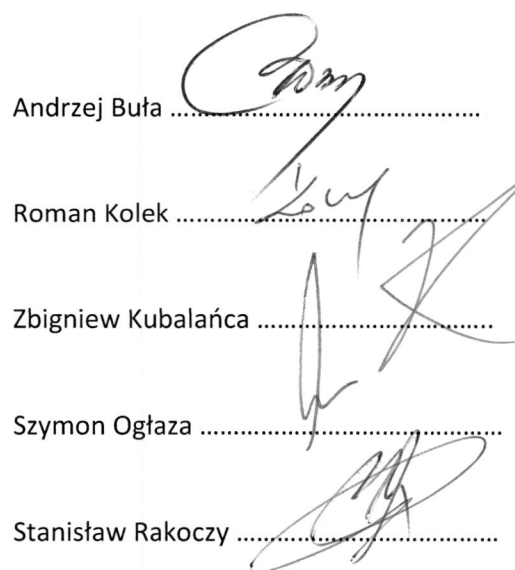 Andrzej Buła ..........................................
Roman Kolek ..........................................
Zbigniew Kubalańca ................................
Szymon Ogłaza ........................................
Stanisław Rakoczy ...................................